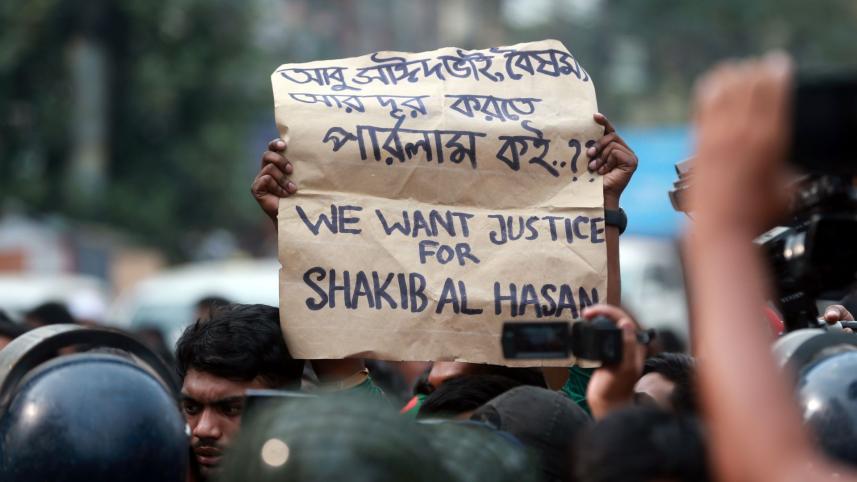 আবু সাঈদ ভাই, বৈষম্য
আর দূর করতে
পারলাম কই..??
WE WANT JUSTICE
FOR
SHAKIB AL HASAN